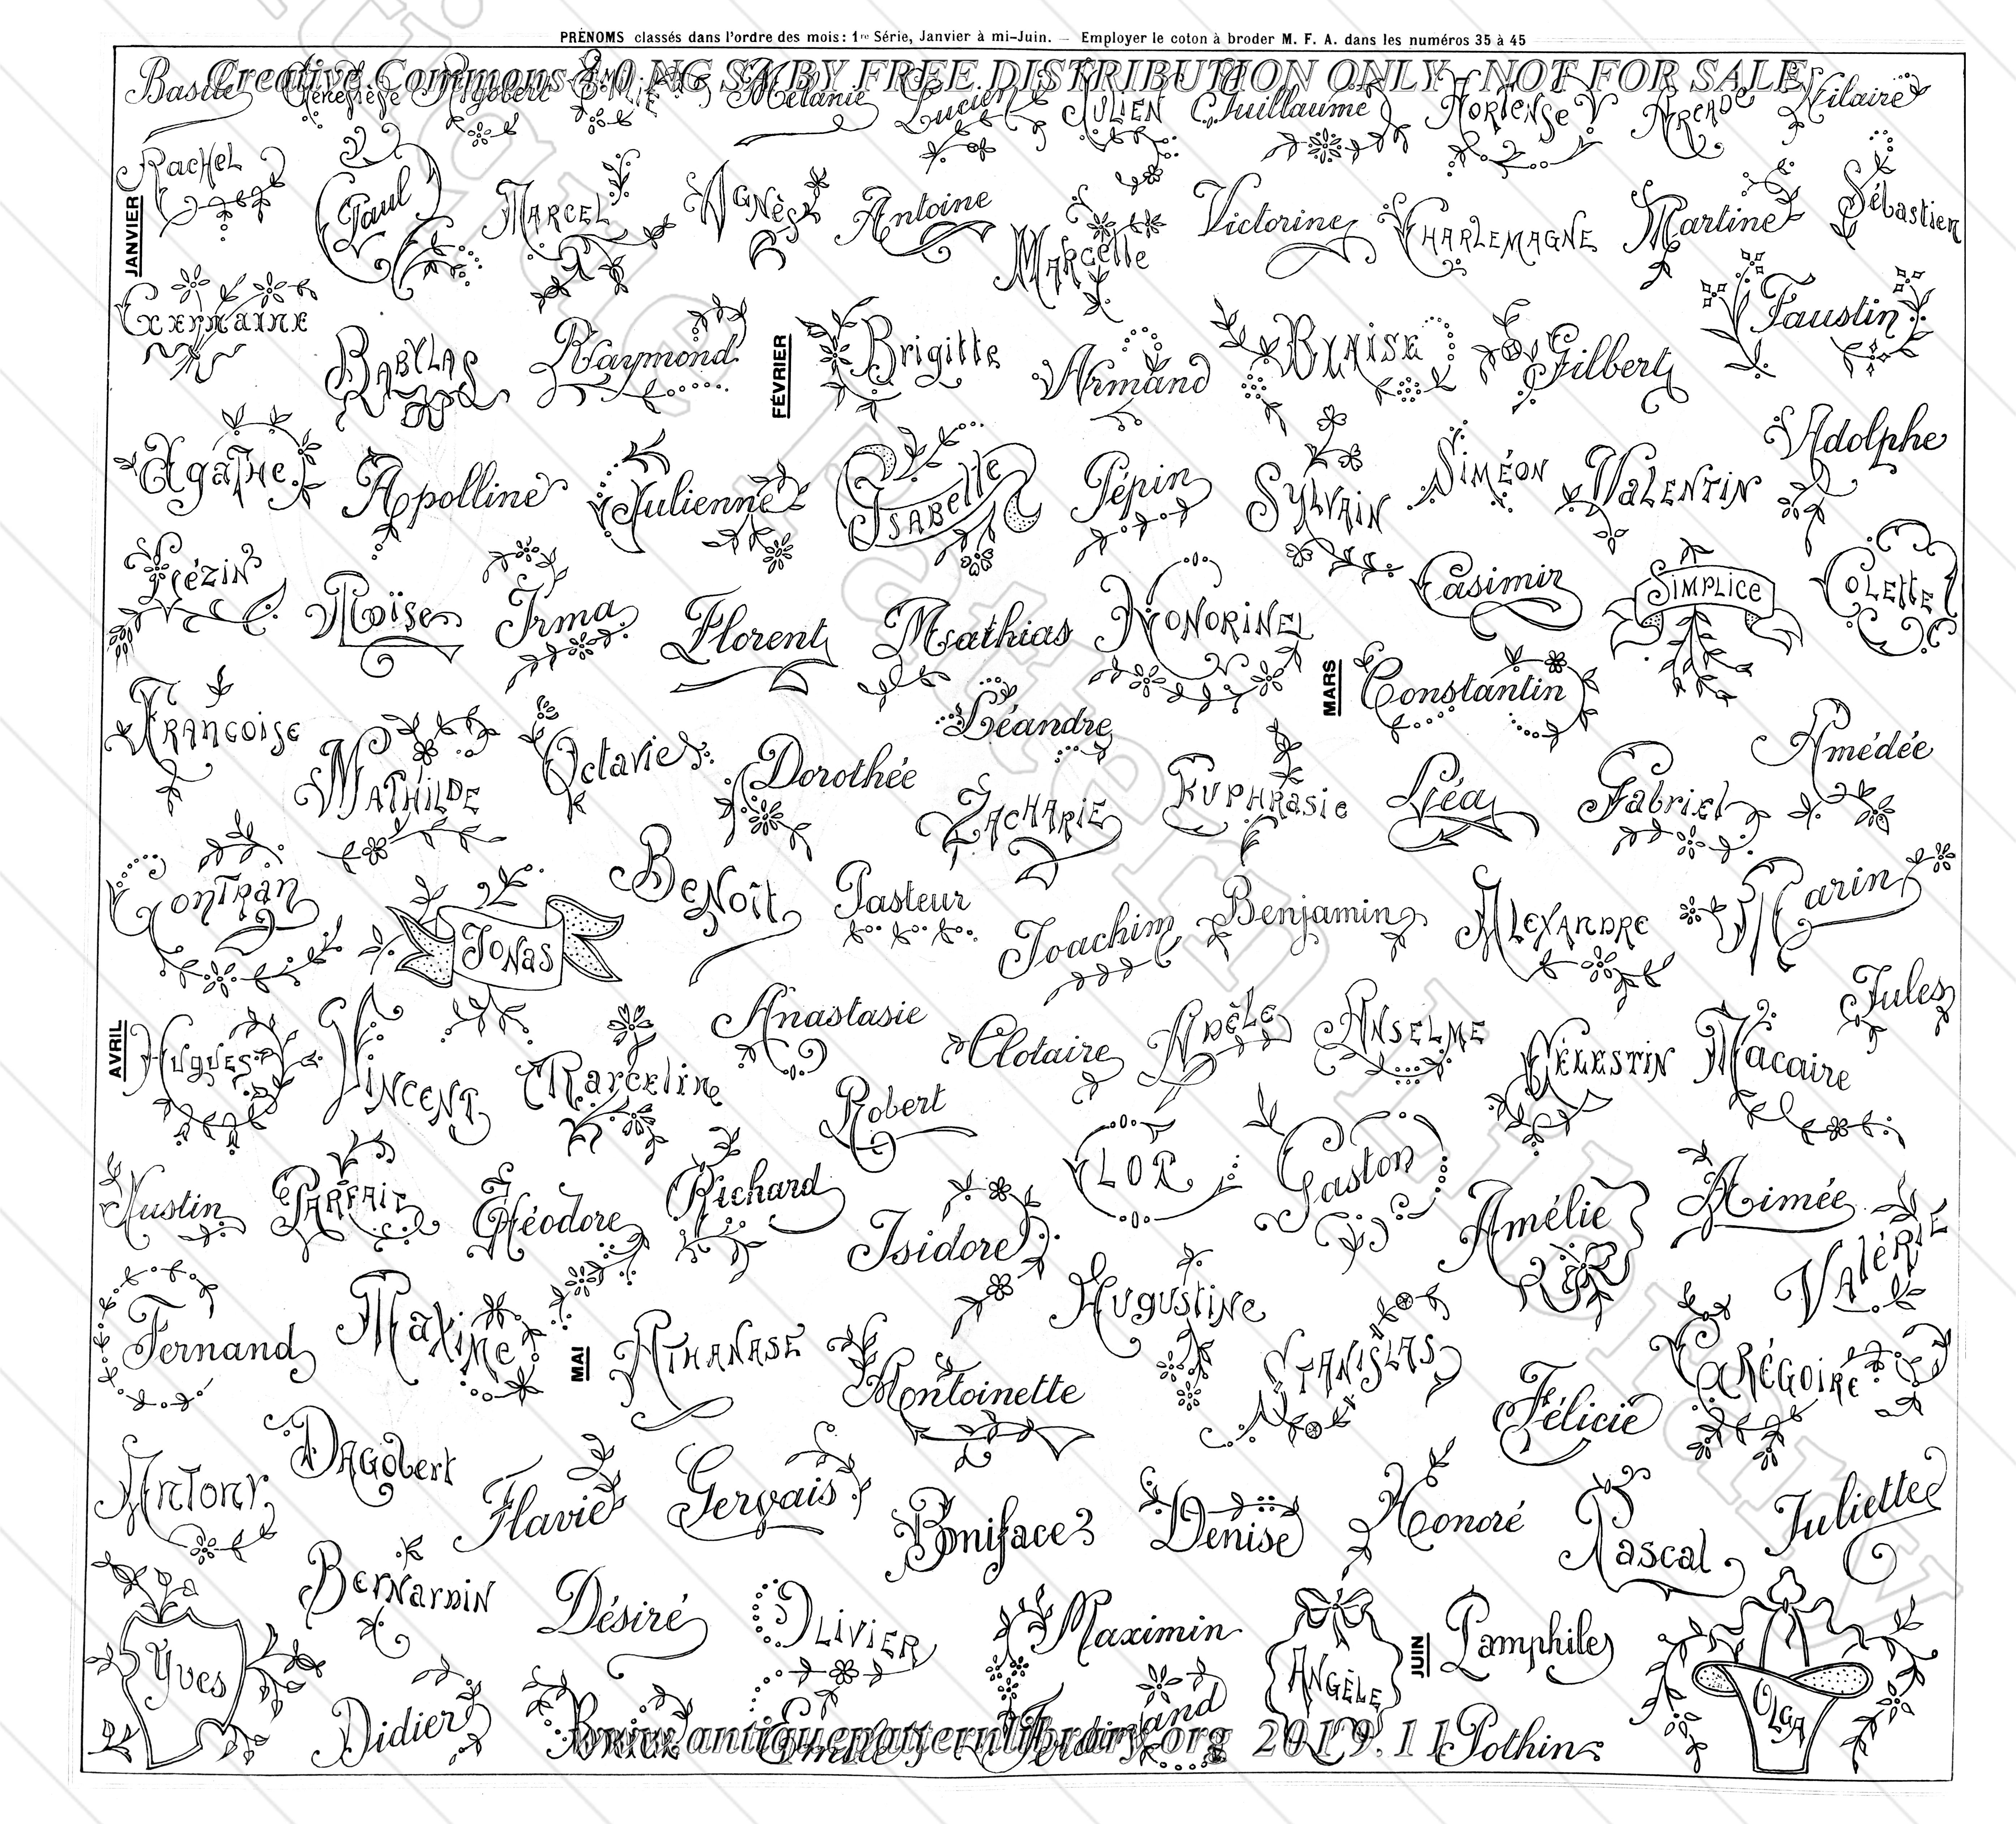 PRÉNOMS classés dans l'ordre des mois: 1re Série, Janvier à mi-Juin. — Employer le coton à broder M. F. A. dans les numéros 35 à 45
Creative Commons 3.0 NC SA BY FREE DISTRIBUTION ONLY - NOT FOR SALE
Basile Geneviève Rigobert Mélanie Lucien Julien Guillaume Hortense Arcade Hilaire
JANVIER
Rachel Paul Marcel Agnès Antoine Marcelle Victorine Charlemagne Martine Sébastien
Germaine Babylas Raymond
FÉVRIER
Brigitte Armand Blaise Gilbert Faustin
Agathe Apolline Julienne Isabelle Pépin Sylvain Siméon Valentin Adolphe
Moïse Irma Florent Mathias Honorine Casimir Simplice Colette
MARS
Constantin
Françoise Mathilde Octavie Dorothée Léandre Zacharie Euphrasie Léa Gabriel Amédée
Gontran Jonas Benoît Pasteur Joachim Benjamin Alexandre Marin
AVRIL
Hugues Vincent Marceline Anastasie Clotaire Adèle Anselme Célestin Macaire Jules
Robert
Justin Parfait Théodore Richard Isidore Flor Gaston Amélie Aimée Valérie
Fernand Maxime
MAI
Athanase Antoinette Augustine Stanislas Félicie Grégoire
Antony Dagobert Flavie Gervais Boniface Denise Honoré Pascal Juliette
Yves Bernardin Désiré Olivier Maximin Angèle
JUIN
Pamphile Olga
Didier Emile Ferdinand Pothin
www.antiquepatternlibrary.org 2019.11
Antique Pattern Library